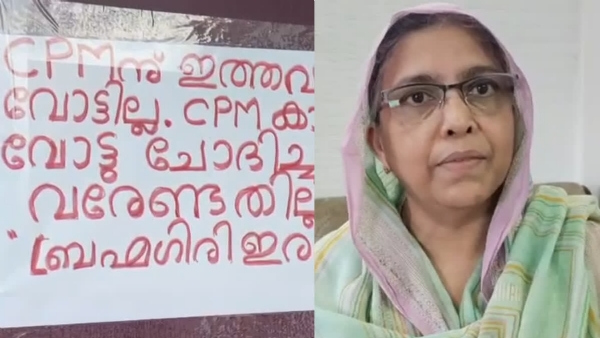 CPMന് ഇത്തവ
വോട്ടില്ല. CPM കാ
വോട്ടു ചോദിച്ച
വരേണ്ടതില്ല
"ബ്രഹ്മഗിരി ഇര